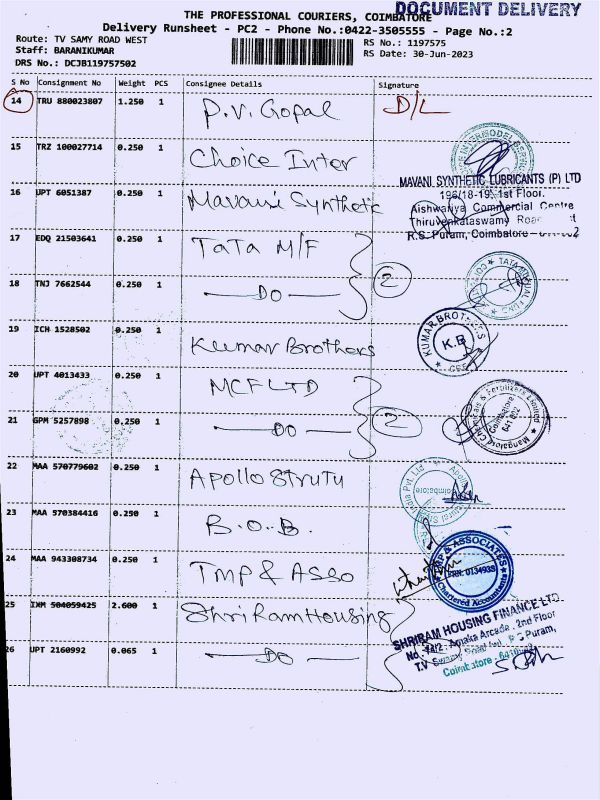 DOCUMENT DELIVERY
THE PROFESSIONAL COURIERS, COIMBATORE
Delivery Runsheet - PC2 - Phone No.:0422-3505555 - Page No.:2
Route: TV SAMY ROAD WEST
RS No.: 1197575
Staff: BARANIKUMAR
RS Date: 30-Jun-2023
DRS No.: DCJB119757502
S No Consignment No Weight PCS Consignee Details Signature
14 TRU 880023807 1.250 1 P.V. Gopal D/L
15 TRZ 100027714 0.250 1 Choice Inter
MAVANI SYNTHETIC LUBRICANTS (P) LTD
196/18-19, 1st Floor.
16 UPT 6051387 0.250 1 Mavani Synthetic
Aishwariya Commercial Centre
Thiruvenkataswamy Road
R.S. Puram, Coimbatore
17 EDQ 21503641 0.250 1 TATA M/F
2
TATA MUTUAL FUND
18 TNJ 7662544 0.250 1 DO
19 ICH 1528502 0.250 1 Kumar Brothers
KUMAR BROTHERS
K.B
20 UPT 4013433 0.250 1 MCF LTD
2
Mangalore Chemicals & Fertilizers Limited
Coimbatore
641 002
21 GPM 5257898 0.250 1 DO
22 MAA 570779602 0.250 1 Apollo Strutu
India Pvt. Ltd
Coimbatore
23 MAA 570384416 0.250 1 B.O.B.
24 MAA 943308734 0.250 1 TMP & ASSO
TMP & ASSOCIATES
FRN: 013493S
Chartered Accountants
25 IXM 504059425 2.600 1 Shri Ram Housing
SHRIRAM HOUSING FINANCE LTD
No. 14/2, Amaka Arcade, 2nd Floor
T.V Swamy Road R S Puram,
Coimbatore
26 UPT 2160992 0.065 1 DO